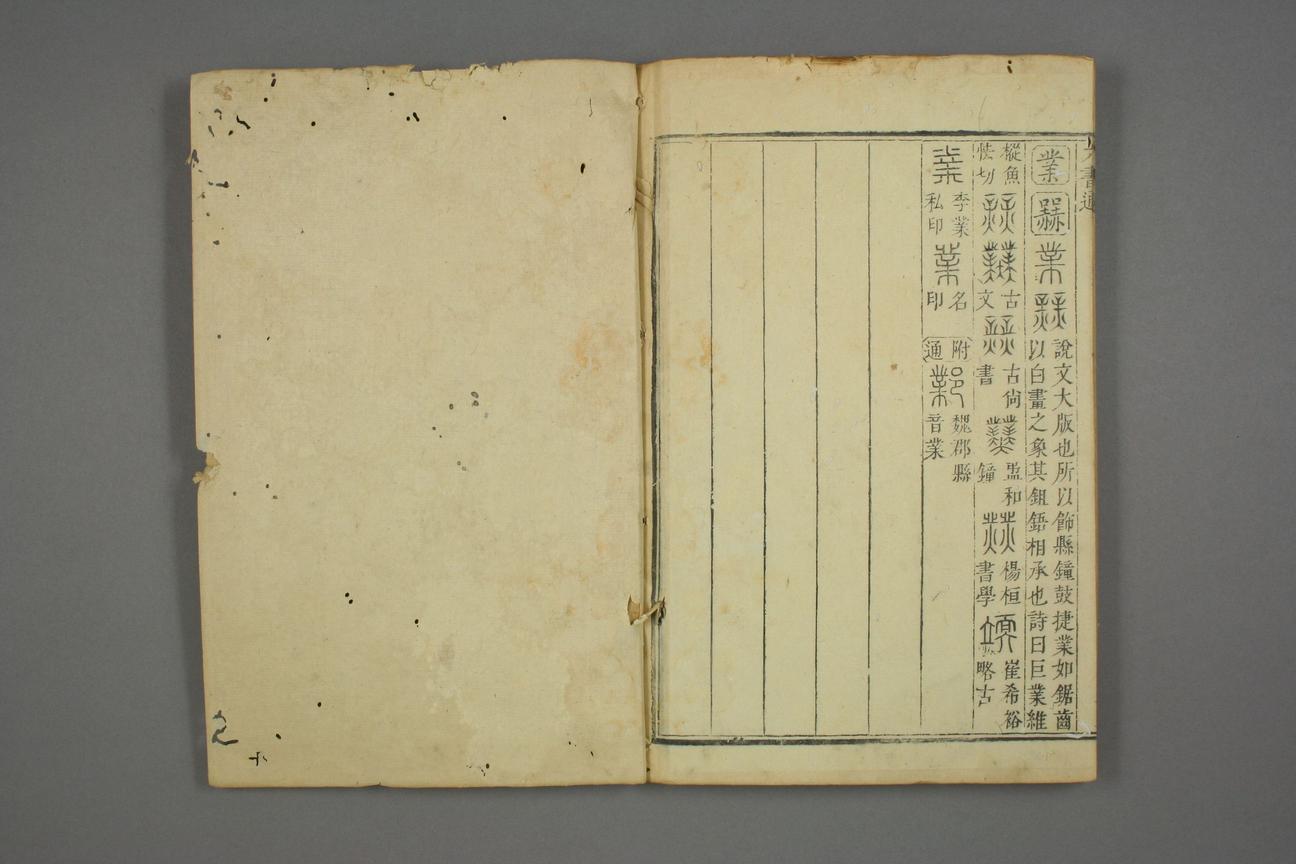 六書通
業 說文大版也所以飾縣鐘鼓捷業如鋸齒
以白畫之象其鉏鋙相承也詩曰巨業維
樅魚怯切 古文 古尙書 盄和鐘 楊桓書學 崔希裕略古
李業私印 名印 附通 魏郡縣音業